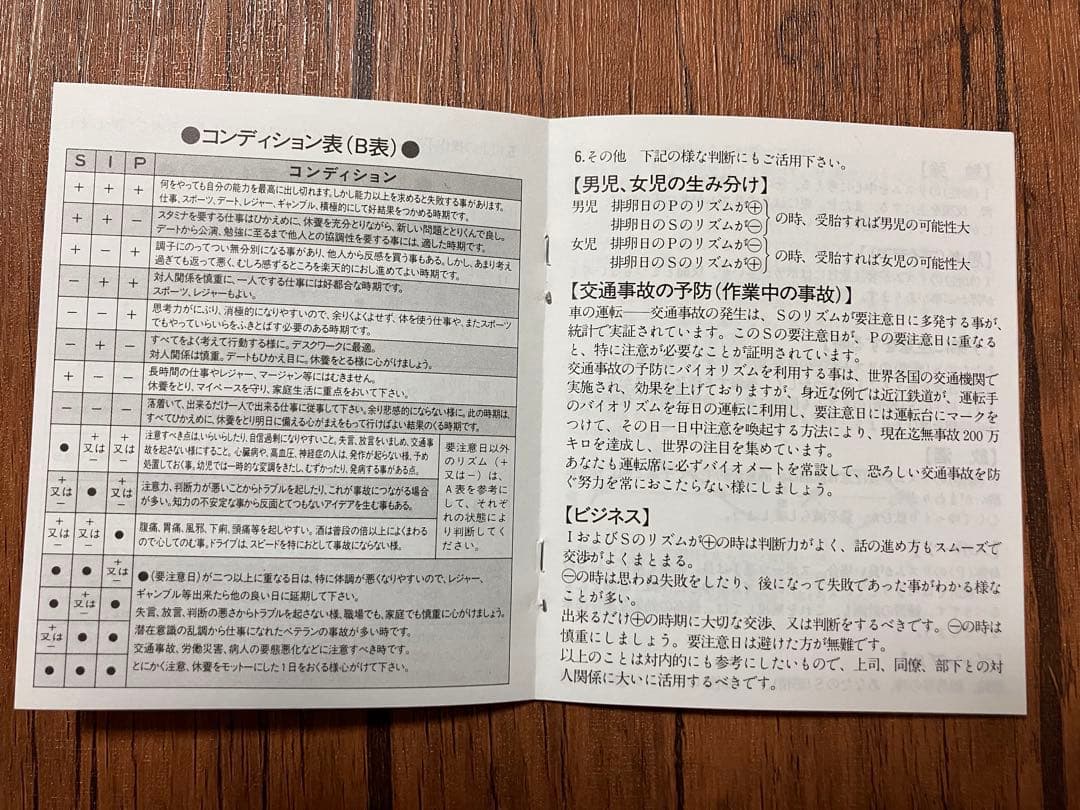 ●コンディション表(B表)●
S I P コンディション
+ + + 何をやっても自分の能力を最高に出し切れます。しかし能力以上を求めると失敗する事があります。
仕事、スポーツ、デート、レジャー、ギャンブル、積極的にして好結果をつかめる時期です。
+ + − スタミナを要する仕事はひかえめに、休養を充分とりながら、新しい問題ととりくんで良し。
デートから公演、勉強に至るまで他人との協調性を要する事には、適した時期です。
+ − + 調子にのってつい無分別になる事があり、他人から反感を買う事もある。しかし、あまり考え
過ぎても返って悪く、むしろ感ずるところを楽天的におし進めてよい時期です。
− + + 対人関係を慎重に、一人でする仕事には好都合な時期です。
スポーツ、レジャーもよい。
− − + 思考力がにぶり、消極的になりやすいので、余りくよくよせず、体を使う仕事や、またスポーツ
でもやっていらいらをふきとばす必要のある時期です。
− + − すべてをよく考えて行動する様に。デスクワークに最適。
対人関係は慎重。デートもひかえ目に。休養をとる様に心がけましょう。
+ − − 長時間の仕事やレジャー、マージャン等にはむきません。
休養をとり、マイペースを守り、家庭生活に重点をおいて下さい。
− − − 落着いて、出来るだけ一人で出来る仕事に従事して下さい。余り悲感的にならない様に。此の時期は、
すべてひかえめに、休養をとり明日に備える心がまえをもって行けばよい結果のくる時期です。
● +又は− +又は− 注意すべき点はいらいらしたり、自信過剰になりやすいこと。失言、放言をいましめ、交通事
故を起さない様にすること。心臓病や、高血圧、神経症の人は、発作が起らない様、予め
処置しておく事。幼児では一時的な変調をきたし、むずかったり、発病する事がある点。
+又は− ● +又は− 注意力、判断力が悪いことからトラブルを起したり、これが事故につながる場合
が多い。知力の不安定な事から反面とてつもないアイデアを生む事もある。
+又は− +又は− ● 腹痛、胃痛、風邪、下痢、頭痛等を起しやすい。酒は普段の倍以上によくまわる
ので心してのむ事。ドライブは、スピードを特におとして事故にならない様。
要注意日以外
のリズム(+
又は−)は、
A表を参考に
して、それぞ
れの状態によ
り判断してく
ださい。
● ● +又は−
● +又は− ●
+又は− ● ●
● ● ●
●(要注意日)が二つ以上に重なる日は、特に体調が悪くなりやすいので、レジャー、
ギャンブル等出来たら他の良い日に延期して下さい。
失言、放言、判断の悪さからトラブルを起さない様、職場でも、家庭でも慎重に心がけましょう。
潜在意識の乱調から仕事になれたベテランの事故が多い時です。
交通事故、労働災害、病人の要態悪化などに注意すべき時です。
とにかく注意、休養をモットーにした1日をおくる様心がけて下さい。
6.その他 下記の様な判断にもご活用下さい。
【男児、女児の生み分け】
男児 排卵日のPのリズムが⊕
排卵日のSのリズムが⊖
}の時、受胎すれば男児の可能性大
女児 排卵日のPのリズムが⊖
排卵日のSのリズムが⊕
}の時、受胎すれば女児の可能性大
【交通事故の予防(作業中の事故)】
車の運転──交通事故の発生は、Sのリズムが要注意日に多発する事が、
統計で実証されています。このSの要注意日が、Pの要注意日に重なる
と、特に注意が必要なことが証明されています。
交通事故の予防にバイオリズムを利用する事は、世界各国の交通機関で
実施され、効果を上げておりますが、身近な例では近江鉄道が、運転手
のバイオリズムを毎日の運転に利用し、要注意日には運転台にマークを
つけて、その日一日中注意を喚起する方法により、現在迄無事故200万
キロを達成し、世界の注目を集めています。
あなたも運転席に必ずバイオメートを常設して、恐ろしい交通事故を防
ぐ努力を常におこたらない様にしましょう。
【ビジネス】
IおよびSのリズムが⊕の時は判断力がよく、話の進め方もスムーズで
交渉がよくまとまる。
⊖の時は思わぬ失敗をしたり、後になって失敗であった事がわかる様な
ことが多い。
出来るだけ⊕の時期に大切な交渉、又は判断をするべきです。⊖の時は
慎重にしましょう。要注意日は避けた方が無難です。
以上のことは対内的にも参考にしたいもので、上司、同僚、部下との対
人関係に大いに活用するべきです。